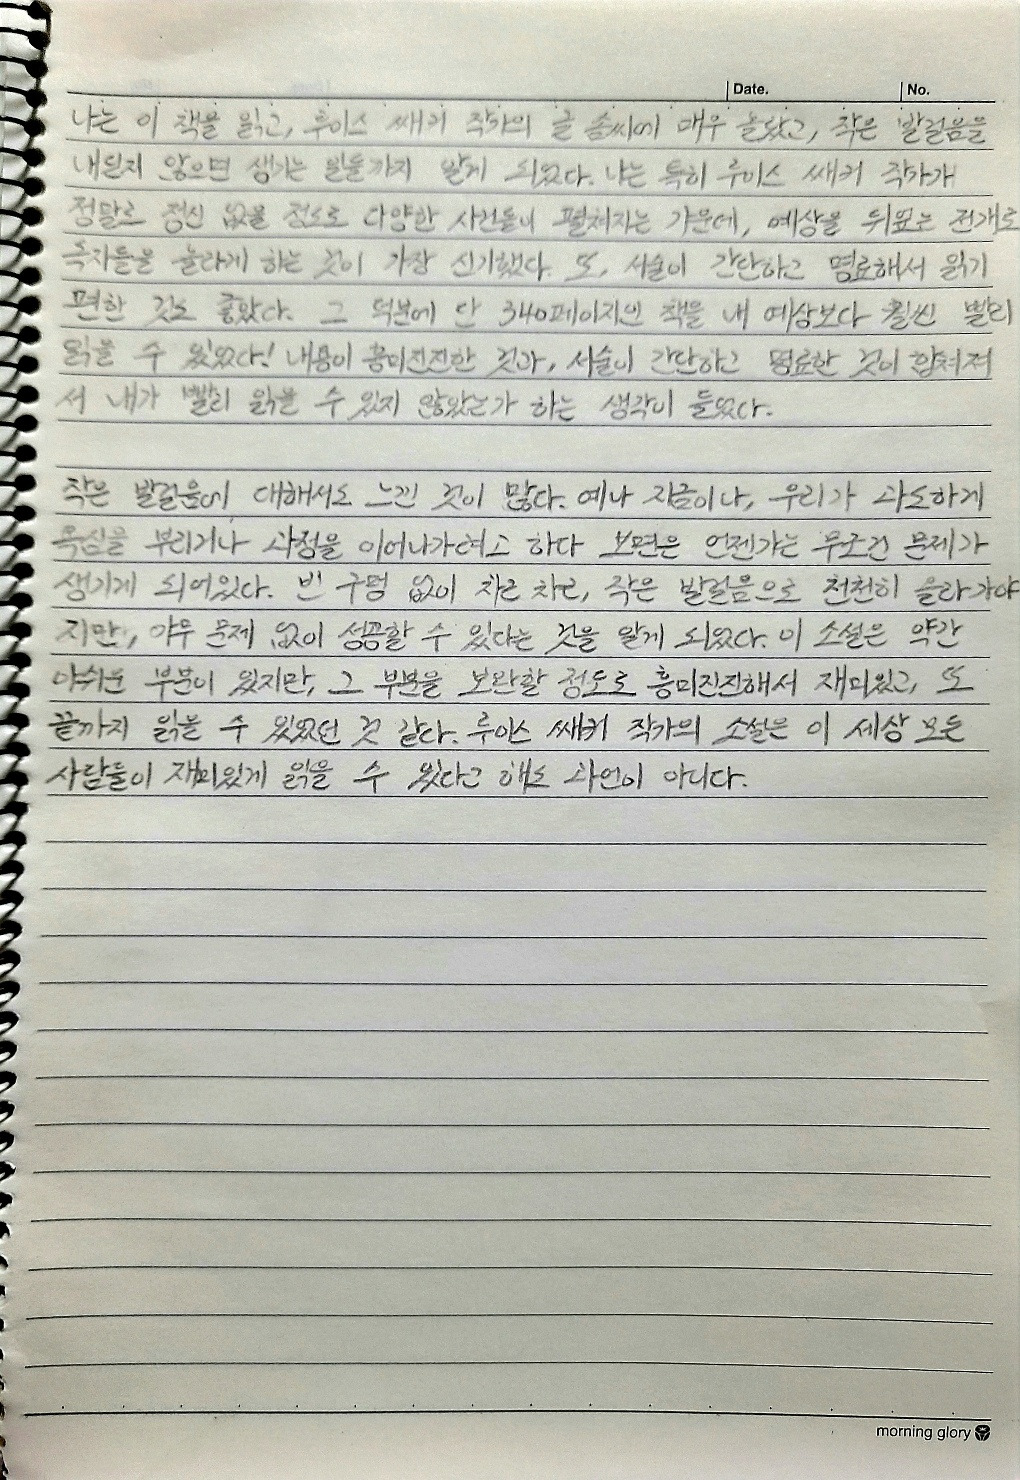 Date. No.
나는 이 책을 읽고, 루이스 쌔커 작가의 글 솜씨에 매우 놀랐고, 작은 발걸음을
내딛지 않으면 생기는 일들까지 알게 되었다. 나는 특히 루이스 쌔커 작가가
정말로 정신 없을 정도로 다양한 사건들이 펼쳐지는 가운데, 예상을 뒤엎는 전개로
독자들을 놀라게 하는 것이 가장 신기했다. 또, 서술이 간단하고 명료해서 읽기
편한 것도 좋았다. 그 덕분에 단 340페이지인 책을 내 예상보다 훨씬 빨리
읽을 수 있었다! 내용이 흥미진진한 것과, 서술이 간단하고 명료한 것이 합쳐져
서 내가 빨리 읽을 수 있지 않았는가 하는 생각이 들었다.
작은 발걸음에 대해서도 느낀 것이 많다. 예나 지금이나, 우리가 과도하게
욕심을 부리거나 과정을 이어나가려고 하다 보면은 언젠가는 무조건 문제가
생기게 되어있다. 빈 구멍 없이 차근 차근, 작은 발걸음으로 천천히 올라가야
지만, 아무 문제 없이 성공할 수 있다는 것을 알게 되었다. 이 소설은 약간
아쉬운 부분이 있지만, 그 부분을 보완할 정도로 흥미진진해서 재미있고, 또
끝까지 읽을 수 있었던 것 같다. 루이스 쌔커 작가의 소설은 이 세상 모든
사람들이 재미있게 읽을 수 있다고 해도 과언이 아니다.
morning glory